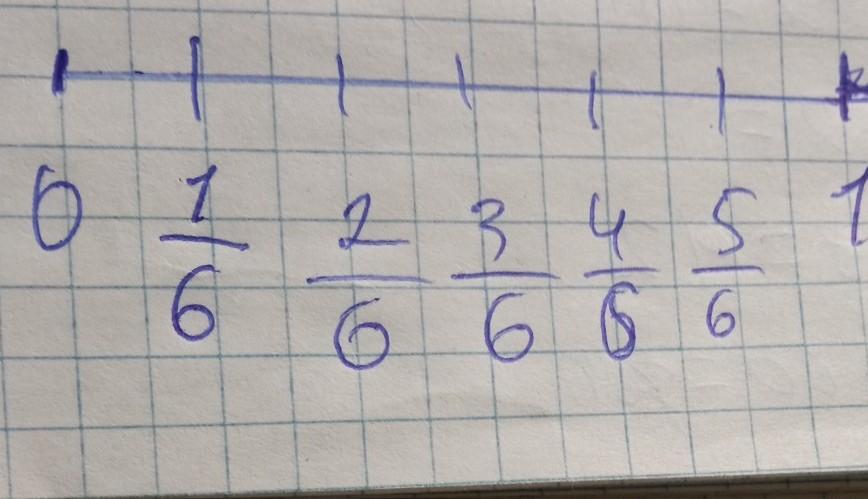 0 1/6 2/6 3/6 4/6 5/6 1